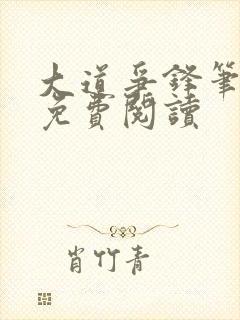 大道爭鋒筆
免費閱讀
肖竹青